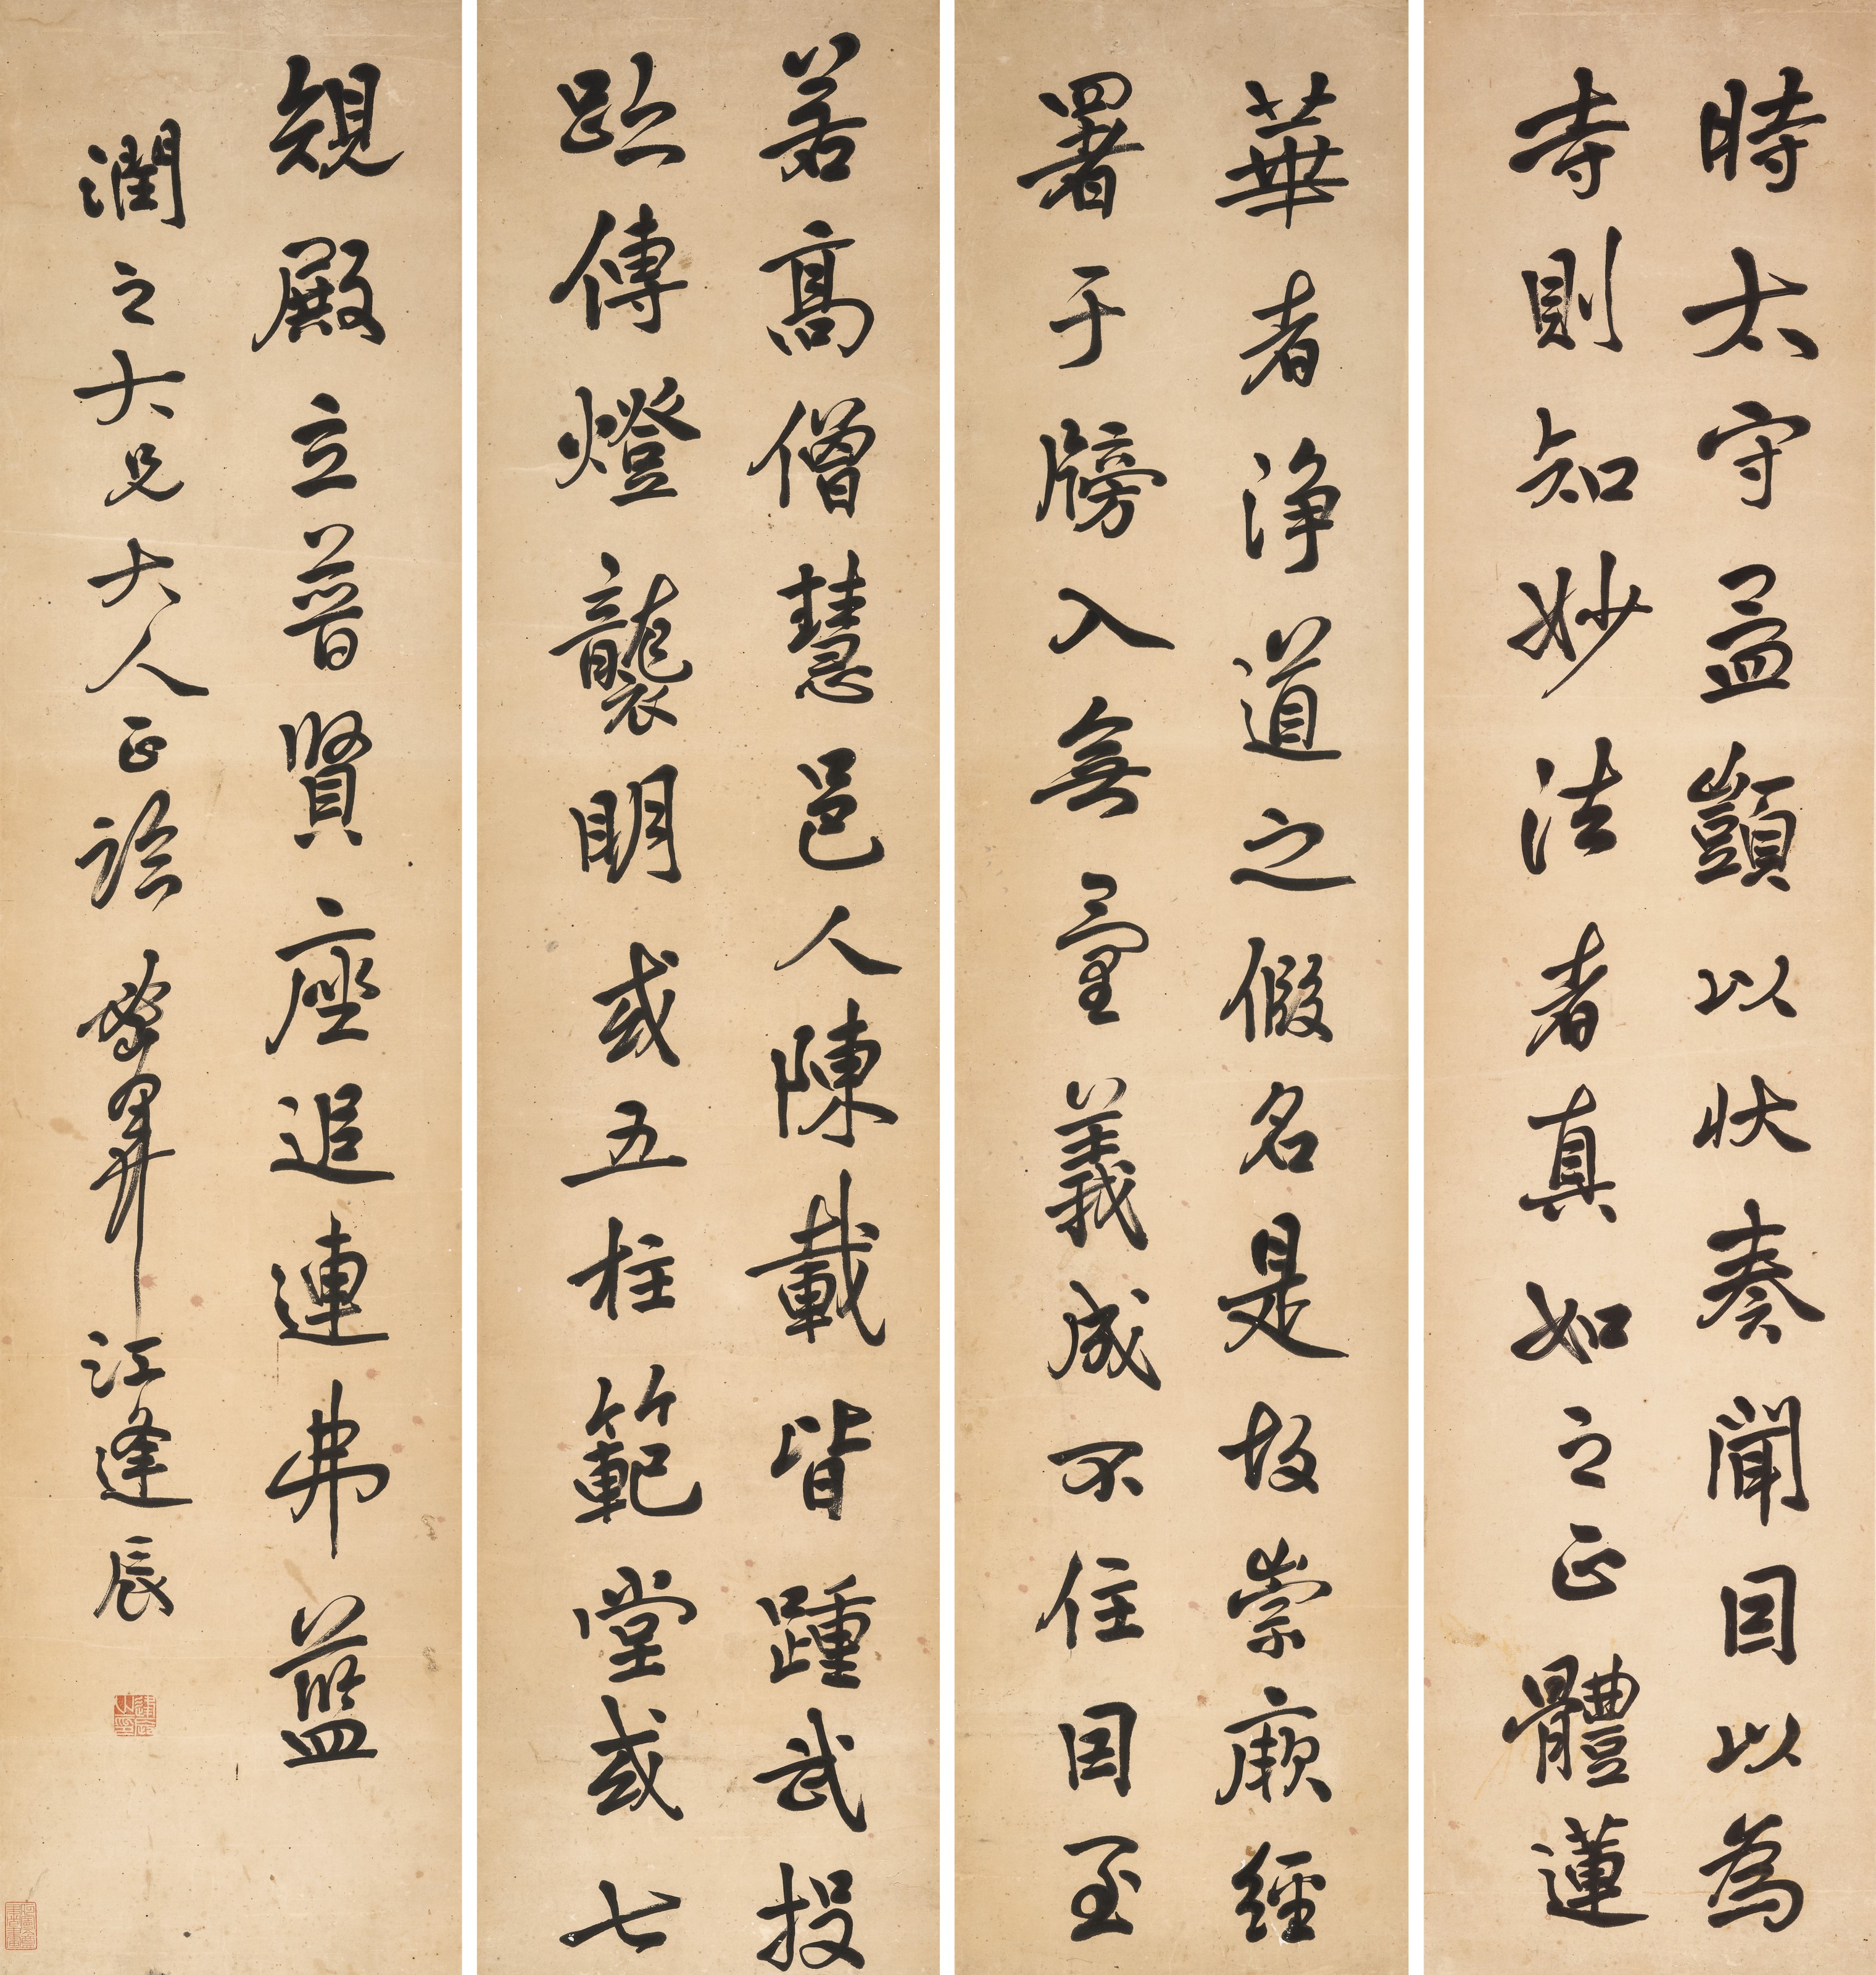 時太守孟顗以狀奏聞因以為
寺則知妙法者真如之正體蓮
華者淨道之假名是故崇厥經
署于牓入無量義成不住因至
若高僧慧邑人陳載皆踵武投
趾傳燈襲明或五柱範堂或七
規殿立普賢座追連弗藍
潤之大兄大人正訟 江逢辰